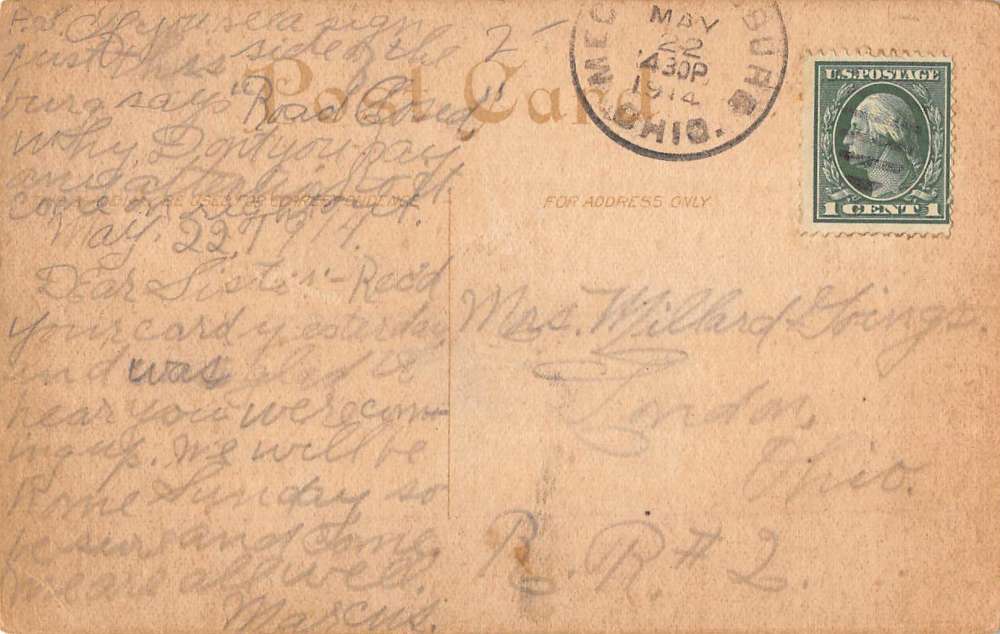 P.S. If you see a sign
just this side of the
burg says "Road Closed"
why, Don't you pay
any attention to it.
Come on right on it.
May. 22, 1914.
Dear Sister:- Rec'd
your card yesterday
and was glad to
hear you were com-
ing up. We will be
home Sunday so
be sure and come.
We are all well.
Marcus.
2
Post Card
MEC BURG
MAY
22
430P
1914
OHIO.
U.S. POSTAGE
1 CENT 1
BE USED FOR CORRESPONDENCE
FOR ADDRESS ONLY
Mrs. Willard Goings.
London,
Ohio.
R. R # 2.